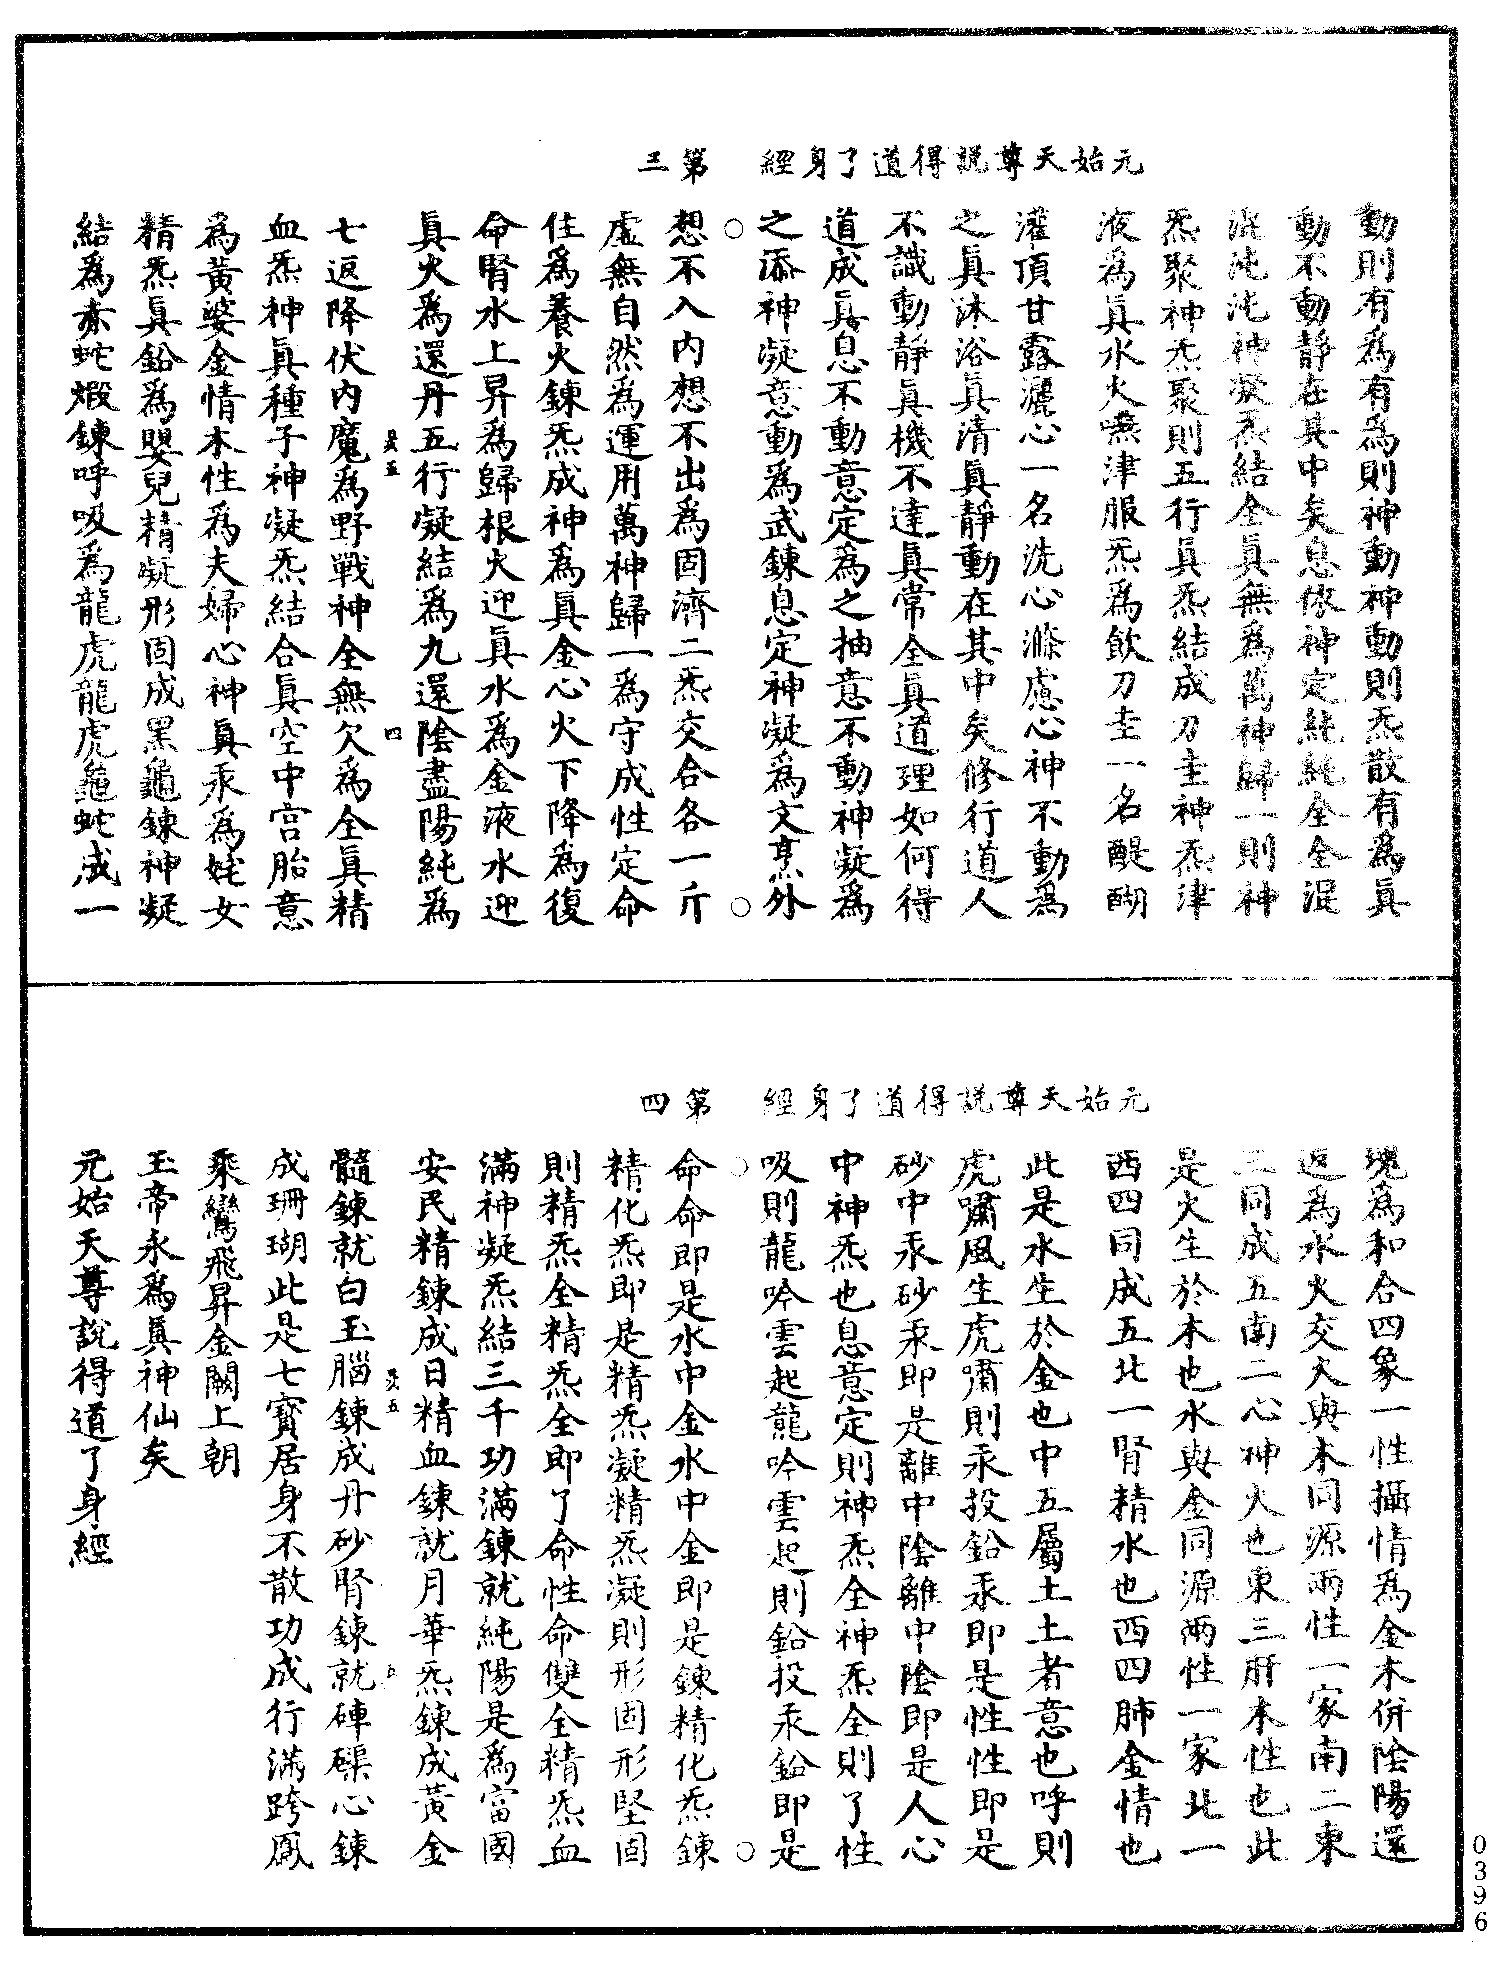 元始天尊說得道了身經　第三
動則有為有為則神動神動則炁散有為真
動不動靜在其中矣息依神定純純全全混
混沌沌神凝炁結全真無為萬神歸一則神
炁聚神炁聚則五行真炁結成刀圭神炁津
液為真水火嚥津服炁為飲刀圭一名醍醐
灌頂甘露灑心一名洗心滌慮心神不動為
之真沐浴真清真靜動在其中矣修行道人
不識動靜真機不達真常全真道理如何得
道成真息不動意定為之抽意不動神凝為
之添神凝意動為武鍊息定神凝為文烹外
想不入內想不出為固濟二炁交合各一斤
虛無自然為運用萬神歸一為守成性定命
住為養火鍊炁成神為真金心火下降為復
命腎水上昇為歸根火迎真水為金液水迎
真火為還丹五行凝結為九還陰盡陽純為
七返降伏內魔為野戰神全無欠為全真精
血炁神真種子神凝炁結合真空中宮胎意
為黃婆金情木性為夫婦心神真汞為姹女
精炁真鉛為嬰兒精凝形固成黑龜鍊神凝
結為赤蛇煅鍊呼吸為龍虎龍虎龜蛇成一
元始天尊說得道了身經　第四
塊為和合四象一性攝情為金木併陰陽還
返為水火交火與木同源兩性一家南二東
三同成五南二心神火也東三肝木性也此
是火生於木也水與金同源兩性一家北一
西四同成五北一腎精水也西四肺金情也
此是水生於金也中五屬土土者意也呼則
虎嘯風生虎嘯則汞投鉛汞即是性性即是
砂中汞砂汞即是離中陰離中陰即是人心
中神炁也息意定則神炁全神炁全則了性
吸則龍吟雲起龍吟雲起則鉛投汞鉛即是
命命即是水中金水中金即是鍊精化炁鍊
精化炁即是精炁凝精炁凝則形固形堅固
則精炁全精炁全即了命性命雙全精炁血
滿神凝炁結三千功滿鍊就純陽是為富國
安民精鍊成日精血鍊就月華炁鍊成黃金
髓鍊就白玉腦鍊成丹砂腎鍊就硨磲心鍊
成珊瑚此是七寶居身不散功成行滿跨鳳
乘鸞飛昇金闕上朝
玉帝永為真神仙矣
元始天尊說得道了身經
0396